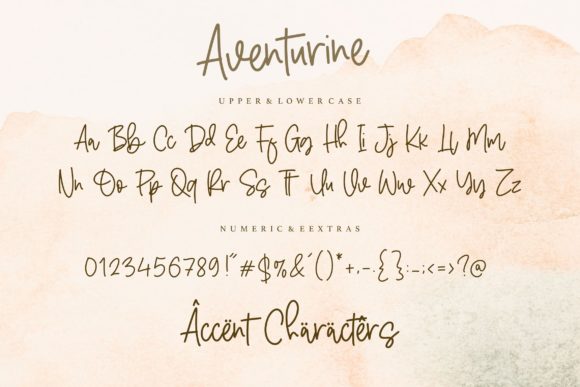 Aventurine
UPPER & LOWER CASE
Aa Bb Cc Dd Ee Ff Gg Hh Ii Jj Kk Ll Mm
Nn Oo Pp Qq Rr Ss Tt Uu Vv Ww Xx Yy Zz
NUMERIC & EEXTRAS
0123456789!"#$%&'()*+,-.{}:_;<=>?@
Âccënt Chäräctêrs